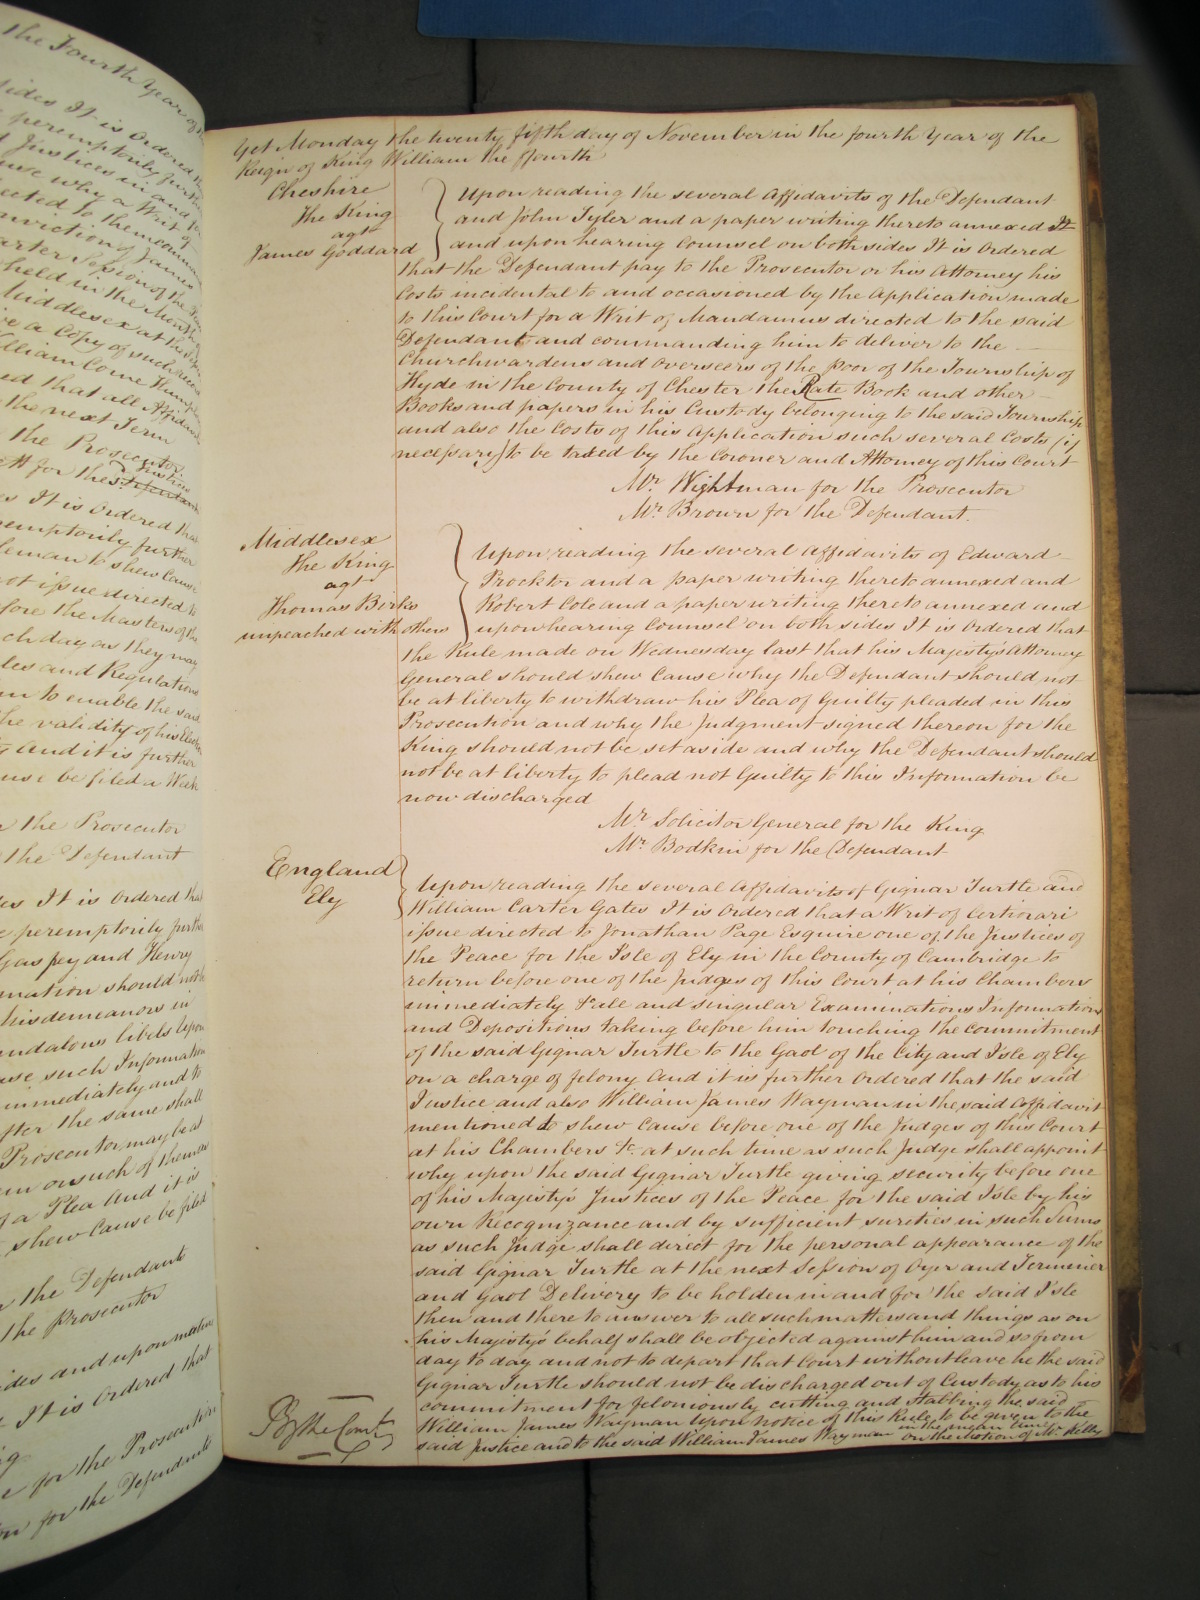 the Fourth Year of
sides It is Ordered
peremptorily further
Justices in and
cause why a Writ of
directed to them
conviction of James
Quarter Session of the
held in the Month
Middlesex at the
a Copy of such
William Come
ed that all Affidavits
the next Term
the Prosecutor
for the Justices
Defendant
It is Ordered that
peremptorily further
to shew Cause
not issue directed to
before the Masters of the
ch day as they may
les and Regulations
to enable the said
the validity of his
and it is further
use be filed a Week
the Prosecutor
the Defendant
It is Ordered that
peremptorily further
and Henry
mation should not
Misdemeanors in
scandalous libels upon
such Information
immediately and to
after the same shall
Prosecutor may be at
on such of them as
a Plea And it is
shew Cause be filed
the Defendants
the Prosecutor
sides and upon
It is Ordered that
for the Prosecution
for the Defendants
Yet Monday the twenty fifth day of November in the fourth Year of the
Reign of King William the ffourth
Cheshire
The King
agt
James Goddard
Upon reading the several Affidavits of the Defendant
and John Tyler and a paper writing thereto annexed It
and upon hearing Counsel on both sides It is Ordered
that the Defendant pay to the Prosecutor or his Attorney his
Costs incidental to and occasioned by the Application made
to this Court for a Writ of Mandamus directed to the said
Defendant and commanding him to deliver to the
Churchwardens and Overseers of the Poor of the Township of
Hyde in the County of Chester the Rate Book and other
Books and papers in his Custody belonging to the said Township
and also the Costs of this Application such several Costs (if
necessary) to be taxed by the Coroner and Attorney of this Court
Mr. Wightman for the Prosecutor
Mr. Brown for the Defendant.
Middlesex
The King
agt
Thomas Birks
unpeached with others
Upon reading the several Affidavits of Edward
Prockter and a paper writing thereto annexed and
Robert Cole and a paper writing thereto annexed and
upon hearing Counsel on both sides It is Ordered that
the Rule made on Wednesday last that his Majesty's Attorney
General should shew Cause why the Defendant should not
be at liberty to withdraw his Plea of Guilty pleaded in this
Prosecution and why the Judgment signed thereon for the
King should not be set aside and why the Defendant should
not be at liberty to plead not Guilty to this Information be
now discharged
Mr. Solicitor General for the King
Mr. Bodkin for the Defendant
England
Ely
Upon reading the several Affidavits of Gignar Turtle and
William Carter Gates It is Ordered that a Writ of Certiorari
issue directed to Jonathan Page Esquire one of the Justices of
the Peace for the Isle of Ely in the County of Cambridge to
return before one of the Judges of this Court at his Chambers
immediately &c all and singular Examinations Informations
and Depositions taking before him touching the commitment
of the said Gignar Turtle to the Gaol of the City and Isle of Ely
on a charge of felony And it is further Ordered that the said
Justice and also William James Wayman in the said Affidavit
mentioned do shew Cause before one of the Judges of this Court
at his Chambers &c at such time as such Judge shall appoint
why upon the said Gignar Turtle giving security before one
of his Majesty's Justices of the Peace for the said Isle by his
own Recognizance and by sufficient sureties in such Sums
as such Judge shall direct for the personal appearance of the
said Gignar Turtle at the next Session of Oyer and Terminer
and Gaol Delivery to be holden in and for the said Isle
then and there to answer to all such matters and things as on
his Majesty's behalf shall be objected against him and so from
day to day and not to depart that Court without leave he the said
Gignar Turtle should not be discharged out of Custody as to his
commitment for feloniously cutting and stabbing the said
William James Wayman upon notice of this Rule to be given to the
said Justice and to the said William James Wayman in the mean time
on the Motion of Mr. Kelly
By the Court